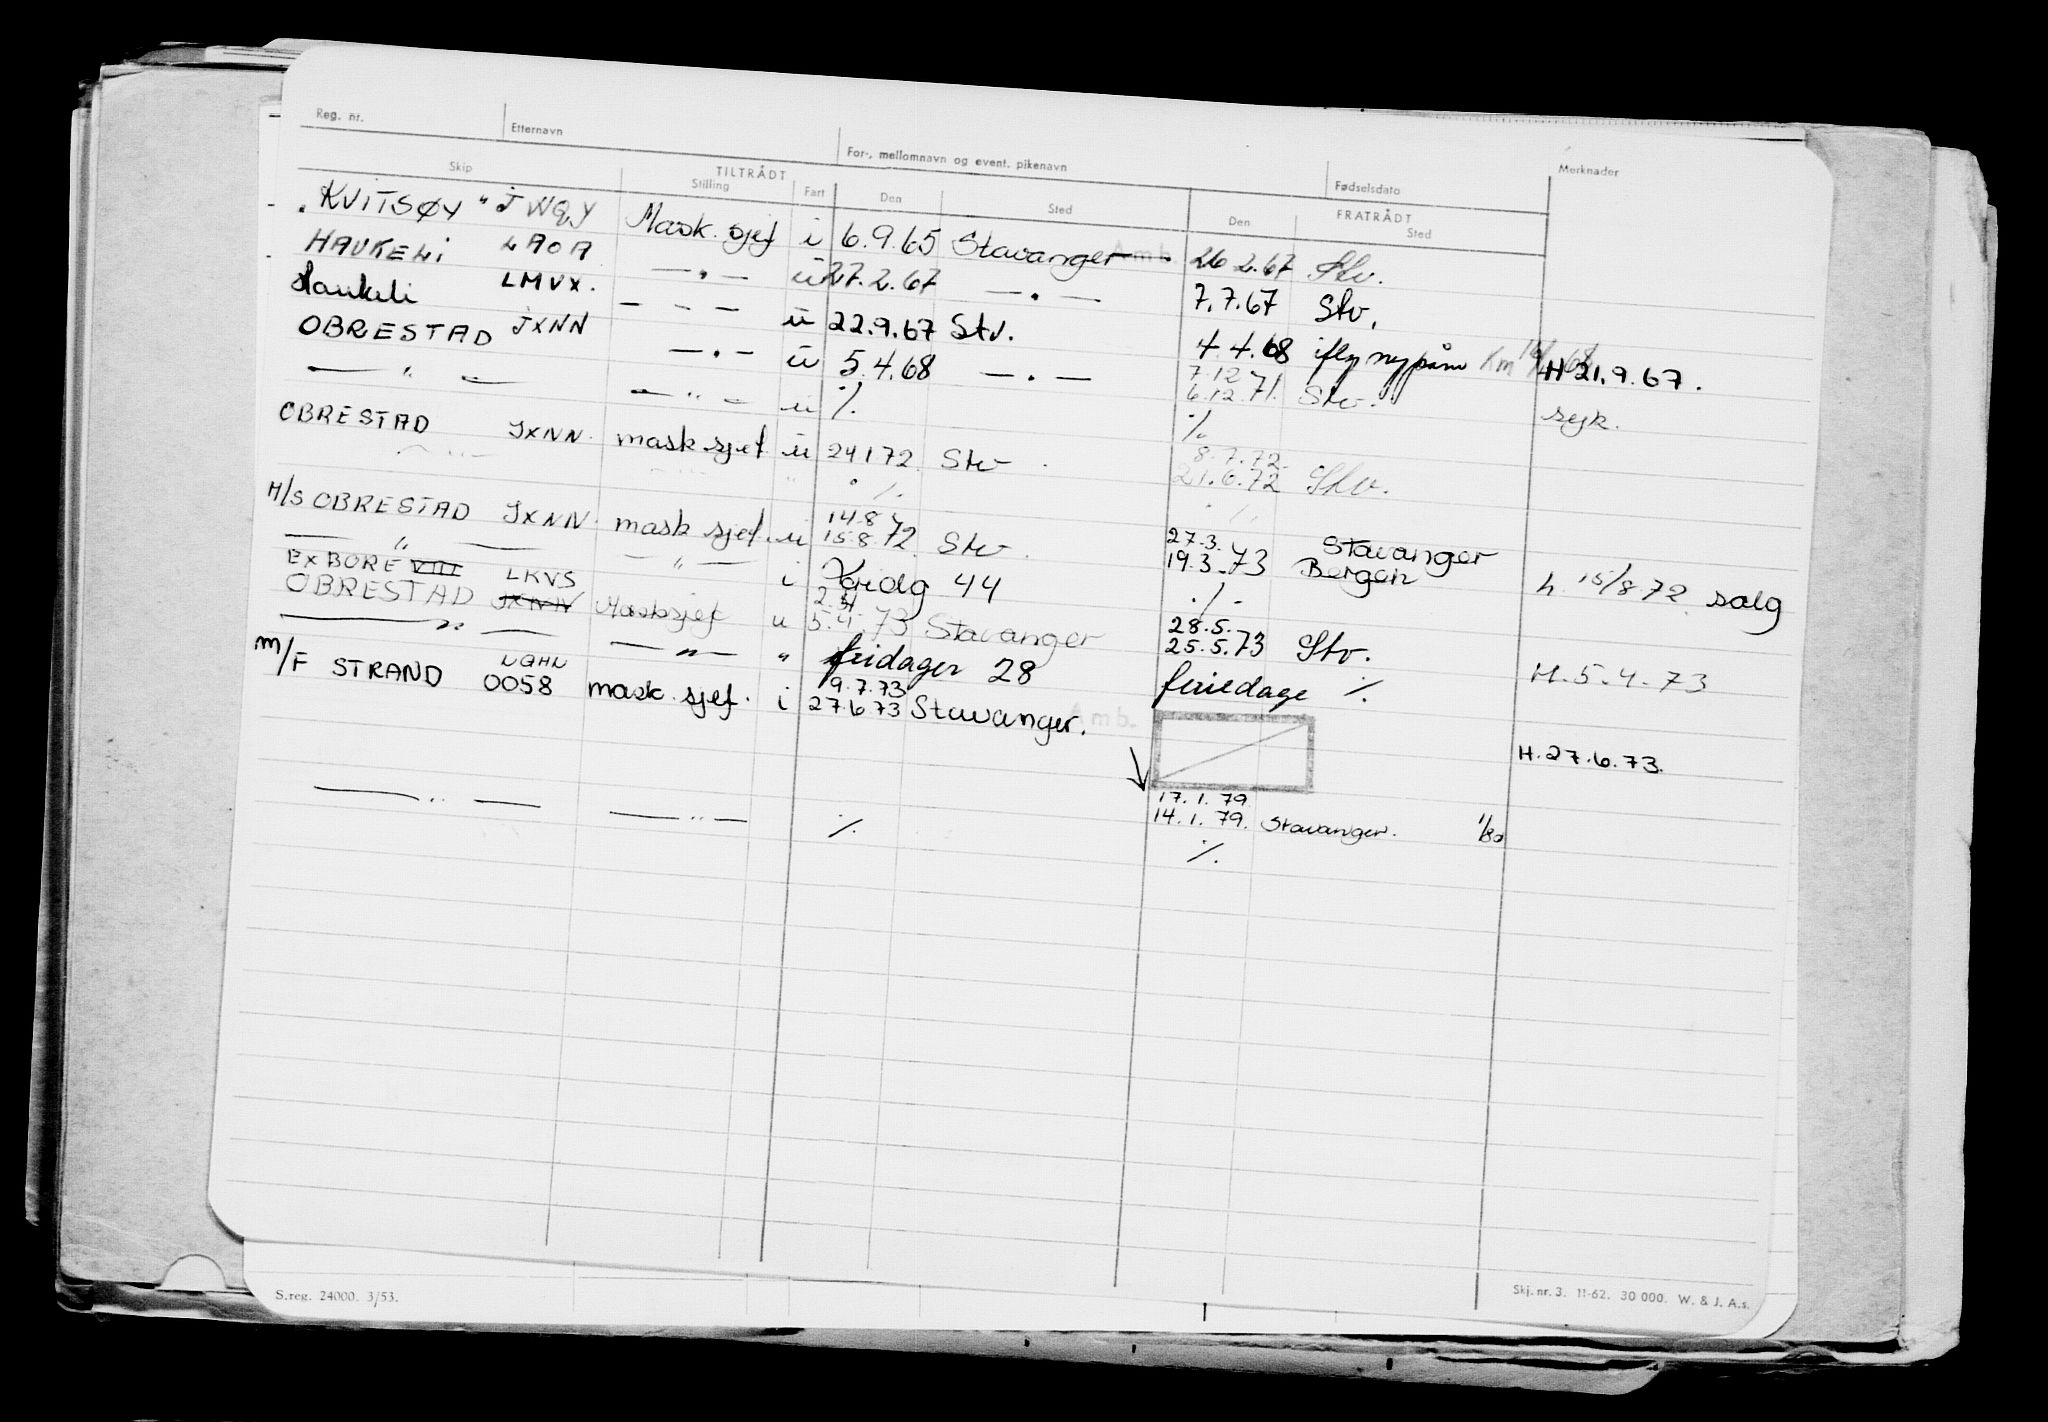 Reg. nr. Etternavn For-, mellomnavn og event. pikenavn Fødselsdato Merknader
Skip TILTRÅDT FRATRÅDT
Stilling Fart Den Sted Den Sted
"KVITSØY" JWQY Mask. sjef i 6.9.65 Stavanger Amb. 26.2.67 Stv.
HAUKELI LAOA —"— u 27.2.67 —"— 7.7.67 Stv.
Haukeli LMVX. — — — u 22.9.67 Stv. 4.4.68 H 21.9.67.
OBRESTAD JXNN —"— u 5.4.68 —"— 7.12 6.12.71. Stv. syk.
—"— —"— u ·/. ·/.
OBRESTAD JXNN. mask sjef u 24.1.72 Stv. 8.7.72. 21.6.72 Stv.
—"— —"— " ·/. ·/.
H/S OBRESTAD JXNN. mask sjef. u 14.8 15.8.72. Stv. 27.3. 19.3.73 Stavanger Bergen h. 15/8.72. salg
—"— —"— i 44 ·/.
EX BORE VIII
OBRESTAD LKVS JXNN Masksjef u 2.4 5.4.73 Stavanger 28.5. 25.5.73 Stv. H.5.4.73
—"— —"— " fridager 28 feriedage ·/.
M/F STRAND LQHN 0058 mask. sjef. i 9.7.73 27.6.73 Stavanger. Amb. H.27.6.73.
17.1.79.
14.1.79. Stavanger. 1/80
—"— —"— ·/. ·/.
S.reg. 24000. 3/53. Skj. nr. 3. 11-62. 30 000. W. & J. A.s.